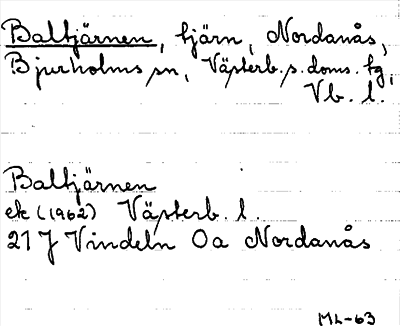 Baltjärnen, tjärn, Nordanås,
Bjurholms sn, Västerb. s. doms. tg,
Vb. l.
Baltjärnen
ek (1962) Västerb. l.
21 J Vindeln 0a Nordanås
ML-63